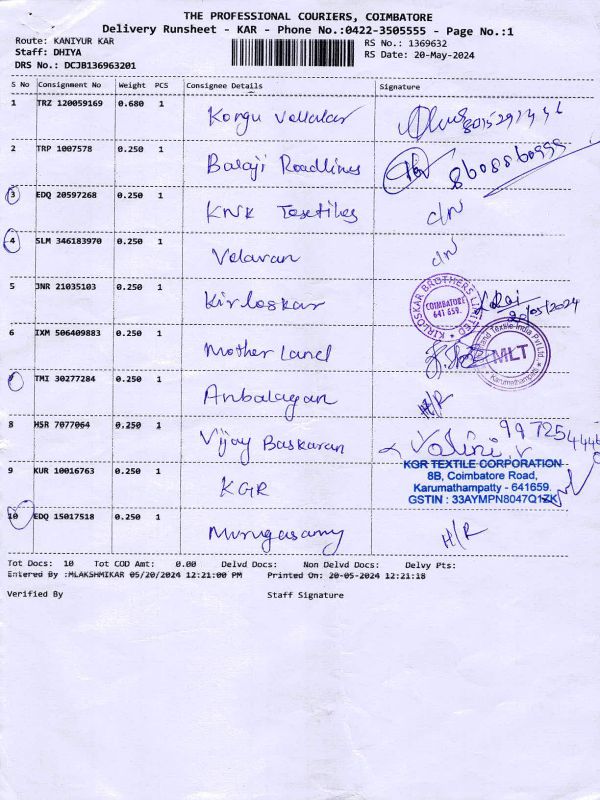 THE PROFESSIONAL COURIERS, COIMBATORE
Delivery Runsheet - KAR - Phone No.:0422-3505555 - Page No.:1
Route: KANIYUR KAR
RS No.: 1369632
Staff: DHIYA
RS Date: 20-May-2024
DRS No.: DCJB136963201
S No Consignment No Weight PCS Consignee Details Signature
1 TRZ 120059169 0.680 1 Kongu Vellalar
2 TRP 1007578 0.250 1 Balaji Roadlines 8608860999
3 EDQ 20597268 0.250 1 KNK Textiles D/N
4 SLM 346183970 0.250 1 Velavan D/N
5 JNR 21035103 0.250 1 Kirloskar 20/05/2024
KIRLOSKAR BROTHERS LIMITED
COIMBATORE
641 659.
6 IXM 506409883 0.250 1 Mother Land
Textile India Pvt Ltd
MLT
Karumathampatti
7 TMI 30277284 0.250 1 Anbalagan H/R
8 HSR 7077064 0.250 1 Vijay Baskaran Valini.v
KGR TEXTILE CORPORATION
8B, Coimbatore Road,
Karumathampatty - 641659.
GSTIN : 33AYMPN8047Q1ZK
9 KUR 10016763 0.250 1 KGR
10 EDQ 15017518 0.250 1 Murugasamy H/R
Tot Docs: 10 Tot COD Amt: 0.00 Delvd Docs: Non Delvd Docs: Delvy Pts:
Entered By :MLAKSHMIKAR 05/20/2024 12:21:00 PM Printed On: 20-05-2024 12:21:18
Verified By Staff Signature